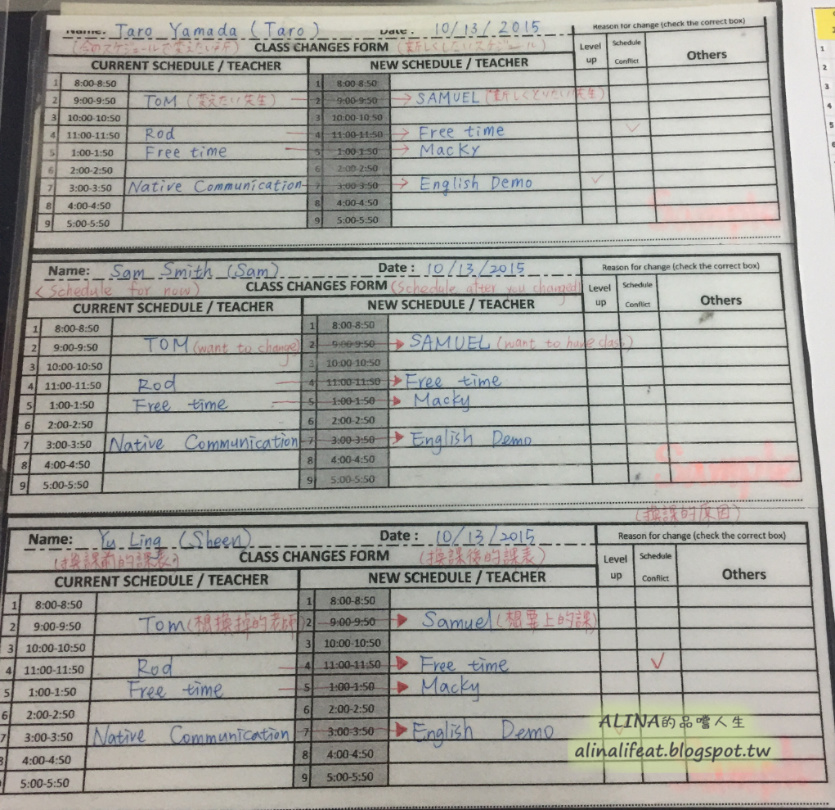 Name: Taro Yamada (Taro) Date: 10/13/2015 Reason for change (check the correct box)
(今のスケジュールで変えたい所) CLASS CHANGES FORM (新しくしたいスケジュール) Level up Schedule Conflict Others
CURRENT SCHEDULE / TEACHER NEW SCHEDULE / TEACHER
1 8:00-8:50 1 8:00-8:50
2 9:00-9:50 TOM (変えたい先生) 2 9:00-9:50 SAMUEL (新しくとりたい先生)
3 10:00-10:50 3 10:00-10:50
4 11:00-11:50 Rod 4 11:00-11:50 Free time
5 1:00-1:50 Free time 5 1:00-1:50 Macky
6 2:00-2:50 6 2:00-2:50
7 3:00-3:50 Native Communication 7 3:00-3:50 English Demo
8 4:00-4:50 8 4:00-4:50
9 5:00-5:50 9 5:00-5:50
Sample
Name: Sam Smith (Sam) Date: 10/13/2015 Reason for change (check the correct box)
(Schedule for now) CLASS CHANGES FORM (Schedule after you changed) Level up Schedule Conflict Others
CURRENT SCHEDULE / TEACHER NEW SCHEDULE / TEACHER
1 8:00-8:50 1 8:00-8:50
2 9:00-9:50 TOM (want to change) 2 9:00-9:50 SAMUEL (want to have class)
3 10:00-10:50 3 10:00-10:50
4 11:00-11:50 Rod 4 11:00-11:50 Free time
5 1:00-1:50 Free time 5 1:00-1:50 Macky
6 2:00-2:50 6 2:00-2:50
7 3:00-3:50 Native Communication 7 3:00-3:50 English Demo
8 4:00-4:50 8 4:00-4:50
9 5:00-5:50 9 5:00-5:50
Sample
(換課的原因)
Name: Yu Ling (Sheen) Date: 10/13/2015 Reason for change (check the correct box)
(換課前的課表) CLASS CHANGES FORM (換課後的課表) Level up Schedule Conflict Others
CURRENT SCHEDULE / TEACHER NEW SCHEDULE / TEACHER
1 8:00-8:50 1 8:00-8:50
2 9:00-9:50 Tom (想換掉的老師) 2 9:00-9:50 Samuel (想要上的課)
3 10:00-10:50 3 10:00-10:50
4 11:00-11:50 Rod 4 11:00-11:50 Free time
5 1:00-1:50 Free time 5 1:00-1:50 Macky
6 2:00-2:50 6 2:00-2:50
7 3:00-3:50 Native Communication 7 3:00-3:50 English Demo
8 4:00-4:50 8 4:00-4:50
5:00-5:50 9 5:00-5:50
ALINA的品嚐人生
alinalifeat.blogspot.tw